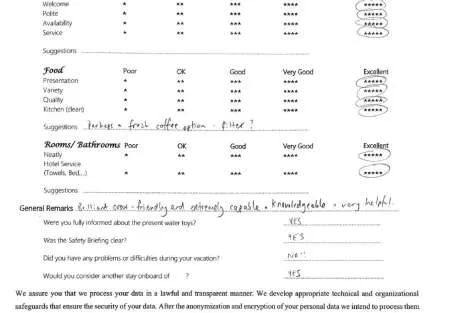 Welcome * ** *** **** *****
Polite * ** *** **** *****
Availability * ** *** **** *****
Service * ** *** **** *****
Suggestions
Food Poor OK Good Very Good Excellent
Presentation * ** *** **** *****
Variety * ** *** **** *****
Quality * ** *** **** *****
Kitchen (clean) * ** *** **** *****
Suggestions Perhaps a fresh coffee option - filter?
Rooms/ Bathrooms Poor OK Good Very Good Excellent
Neatly * ** *** **** *****
Hotel Service
(Towels, Bed,..) * ** *** **** *****
Suggestions
General Remarks Brilliant crew - friendly and extremely capable + knowledgeable + very helpful.
Were you fully informed about the present water toys? YES
Was the Safety Briefing clear? YES
Did you have any problems or difficulties during your vacation? NO!!
Would you consider another stay onboard of ? YES
We assure you that we process your data in a lawful and transparent manner. We develop appropriate technical and organizational
safeguards that ensure the security of your data. After the anonymization and encryption of your personal data we intend to process them